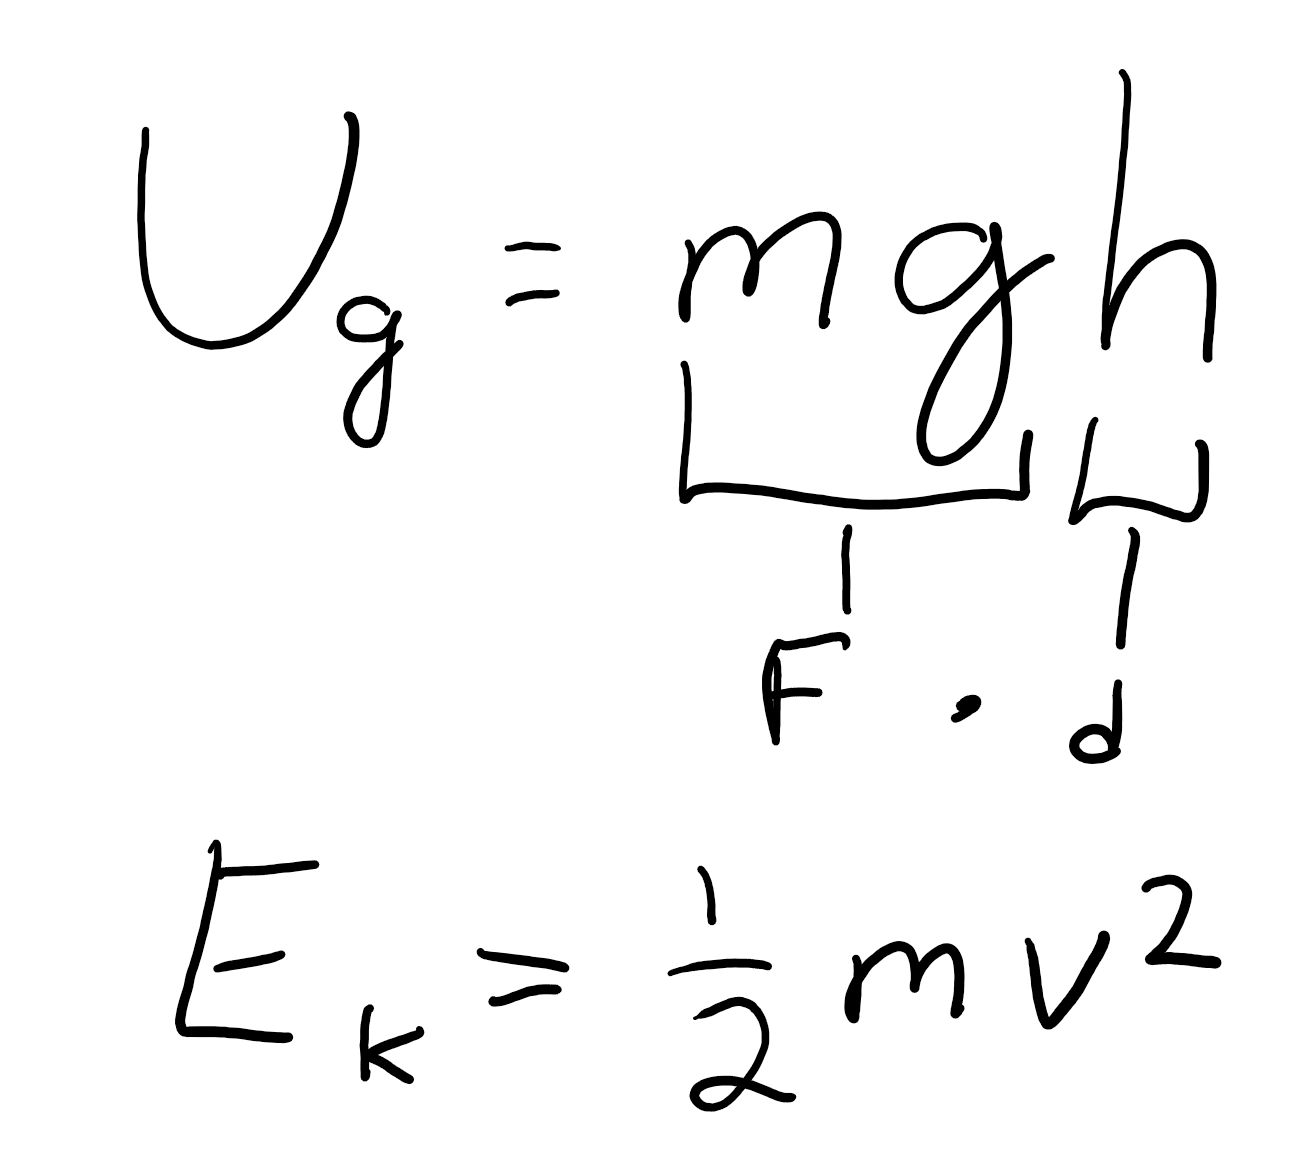 U_g = mgh
F · d
E_k = 1/2 mv²